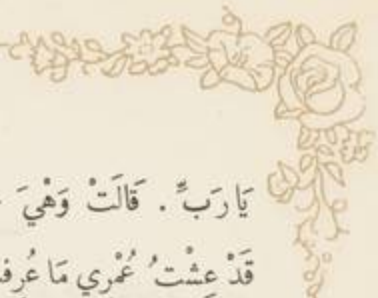 يَا رَبِّ . قَالَتْ وَهْيَ
قَدْ عِشْتُ عُمْرِي مَا